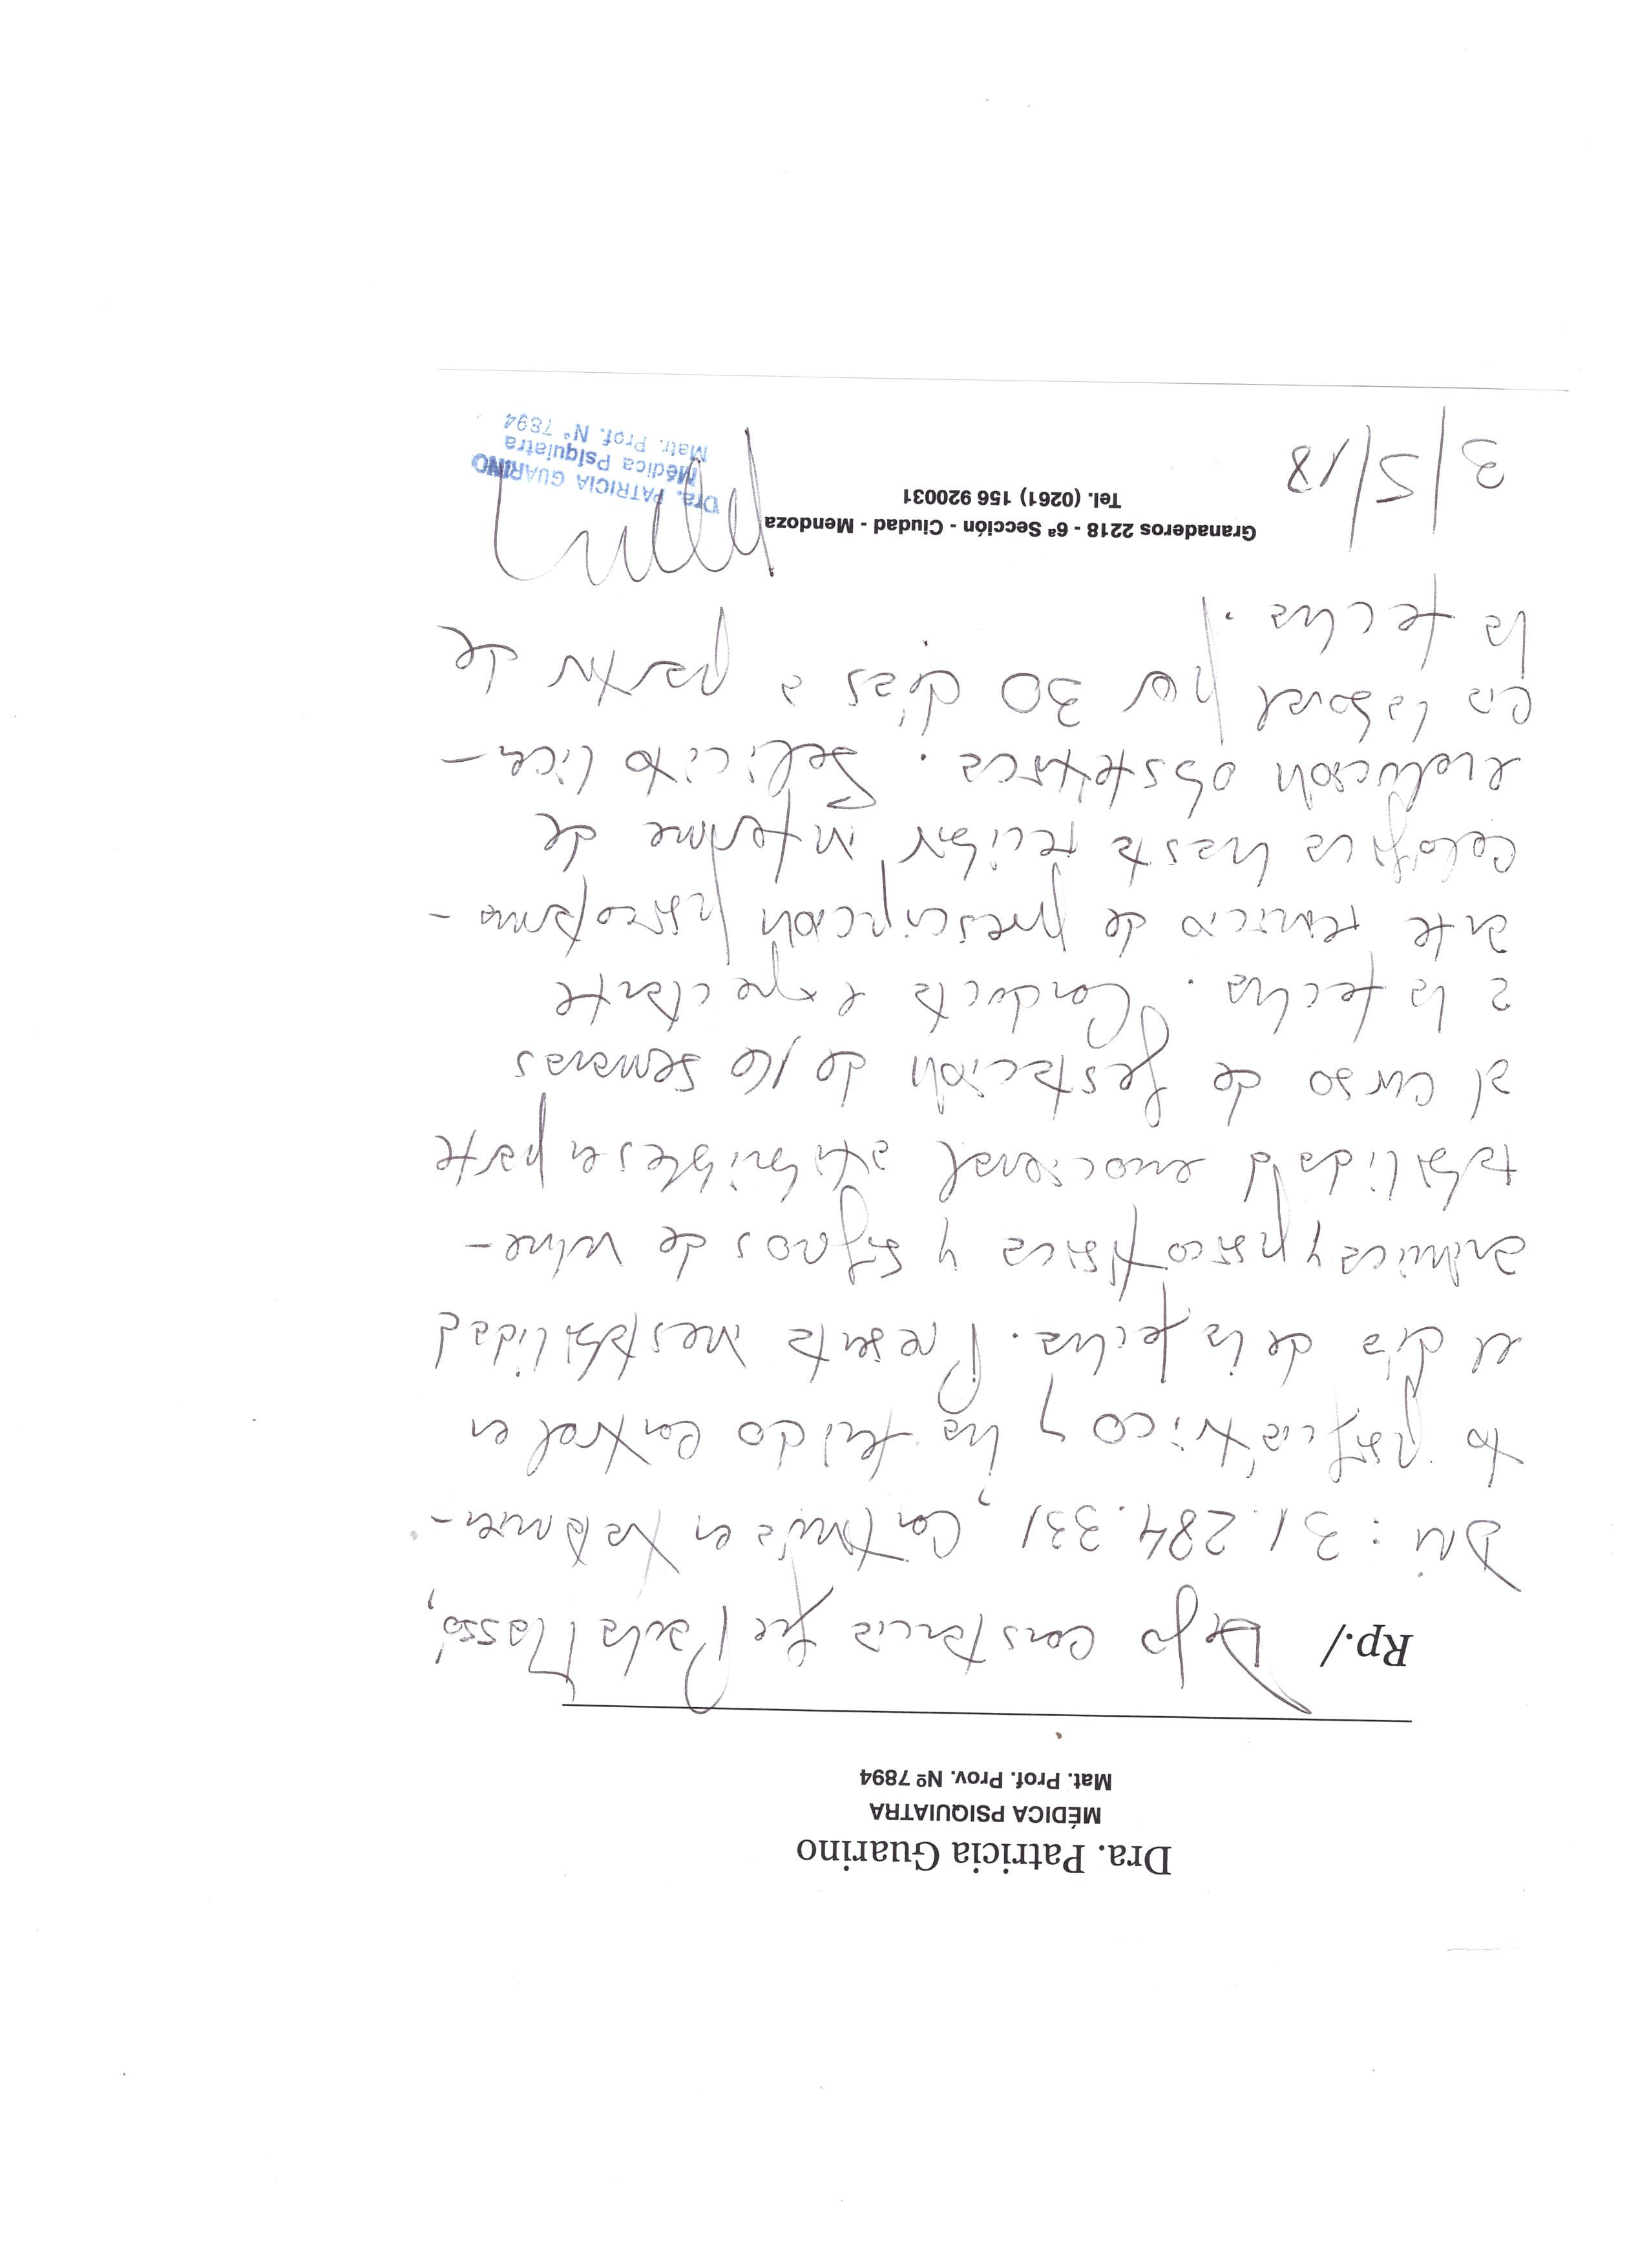 Dra. Patricia Guarino
MÉDICA PSIQUIATRA
Mat. Prof. Prov. Nº 7894
Rp./ Dejo constancia que Paula Massó,
DNI: 31.284.331, continúa en tratamien-
to psiquiátrico y ha tenido control en
el día de la fecha. Presenta inestabilidad
anímica y psicofísica y signos de vulne-
rabilidad emocional atribuibles en parte
al curso de gestación de 16 semanas
a la fecha. Conducta expectante
ante reinicio de prescripción psicofarma-
cológica hasta recibir informe de
evolución obstétrica. Solicito licen-
cia laboral por 30 días a partir de
la fecha.
Granaderos 2218 - 6ª Sección - Ciudad - Mendoza
Tel. (0261) 156 920031
3/5/18
Dra. PATRICIA GUARINO
Médica Psiquiatra
Matr. Prof. N° 7894